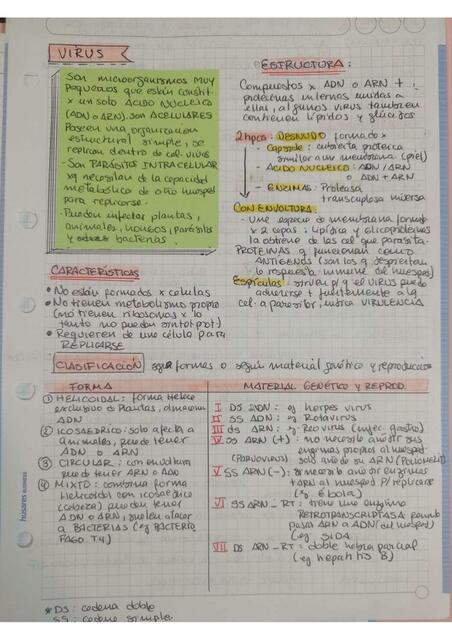 VIRUS
Son microorganismos MUY
Pequeños que están constit.
x un solo ÁCIDO NUCLEICO
(ADN o ARN). SON ACELULARES
Poseen una organización
estructural simple, se
replican dentro de cel. vivas
- Son PARÁSITOS INTRACELULAR
xq necesitan de la capacidad
metabólica de otro huesped
para replicarse.
- Pueden infectar plantas,
animales, hongos, parásitos
y bacterias.
CARACTERÍSTICAS
• No están formados x células
• No tienen metabolismo propio
(no tienen ribosomas x lo
tanto no pueden sint prot.)
• Requieren de una célula para
REPLICARSE
ESTRUCTURA:
Compuestos x ADN o ARN +
proteínas internas unidas a
ellas, algunos virus también
contienen lípidos y
2 tipos: DESNUDO formado x
- Capside: cubierta proteica
similar a una membrana (piel)
- ACIDO NUCLEICO: ADN / ARN
o ADN + ARN
- ENZIMAS: Proteasa
transcriptasa inversa
CON ENVOLTURA
- Una especie de membrana formada
x 2 capas: lipídica y glicoproteínas
la obtiene de las cel que parasita.
PROTEINAS q funcionan como
ANTÍGENOS (son los q despiertan
la respuesta inmune del huesped)
Espículas: sirven p/ q el virus pueda
adherirse + fuertemente a la
cel. a parasitar, indica VIRULENCIA
CLASIFICACIÓN según formas o según material genético y reproducción
FORMA
① HELICOIDAL: forma Hélice
exclusivo de Plantas, almacena
ADN
② ICOSAEDRICO: solo afecta a
animales, puede tener
ADN o ARN
③ CIRCULAR: con envoltura
puede tener ARN o ADN
④ MIXTO: combina forma
Helicoidal con icosaedrica
(cabeza) pueden tener
ADN o ARN, suelen atacar
a BACTERIAS (ej BACTERIO
FAGO T4)
MATERIAL GENÉTICO y REPROD.
I DS ADN: ej herpes virus
II SS ADN: ej Rotavirus
III ds ARN: ej Reovirus (infec. gastro)
IV SS ARN (+): no necesita añadir sus
enzimas propias al huesped
solo añade su ARN
V SS ARN (-): si necesita añadir enzimas
+ ARN al huesped p/ replicarse
(ej. ébola)
VI SS ARN - RT: tiene una enzima
RETROTRANSCRIPTASA
pasar ARN a ADN (del huesped)
ej SIDA
VII DS ARN - RT: doble hebra parcial
(ej hepatitis B)
* DS: cadena doble
SS: cadena simple